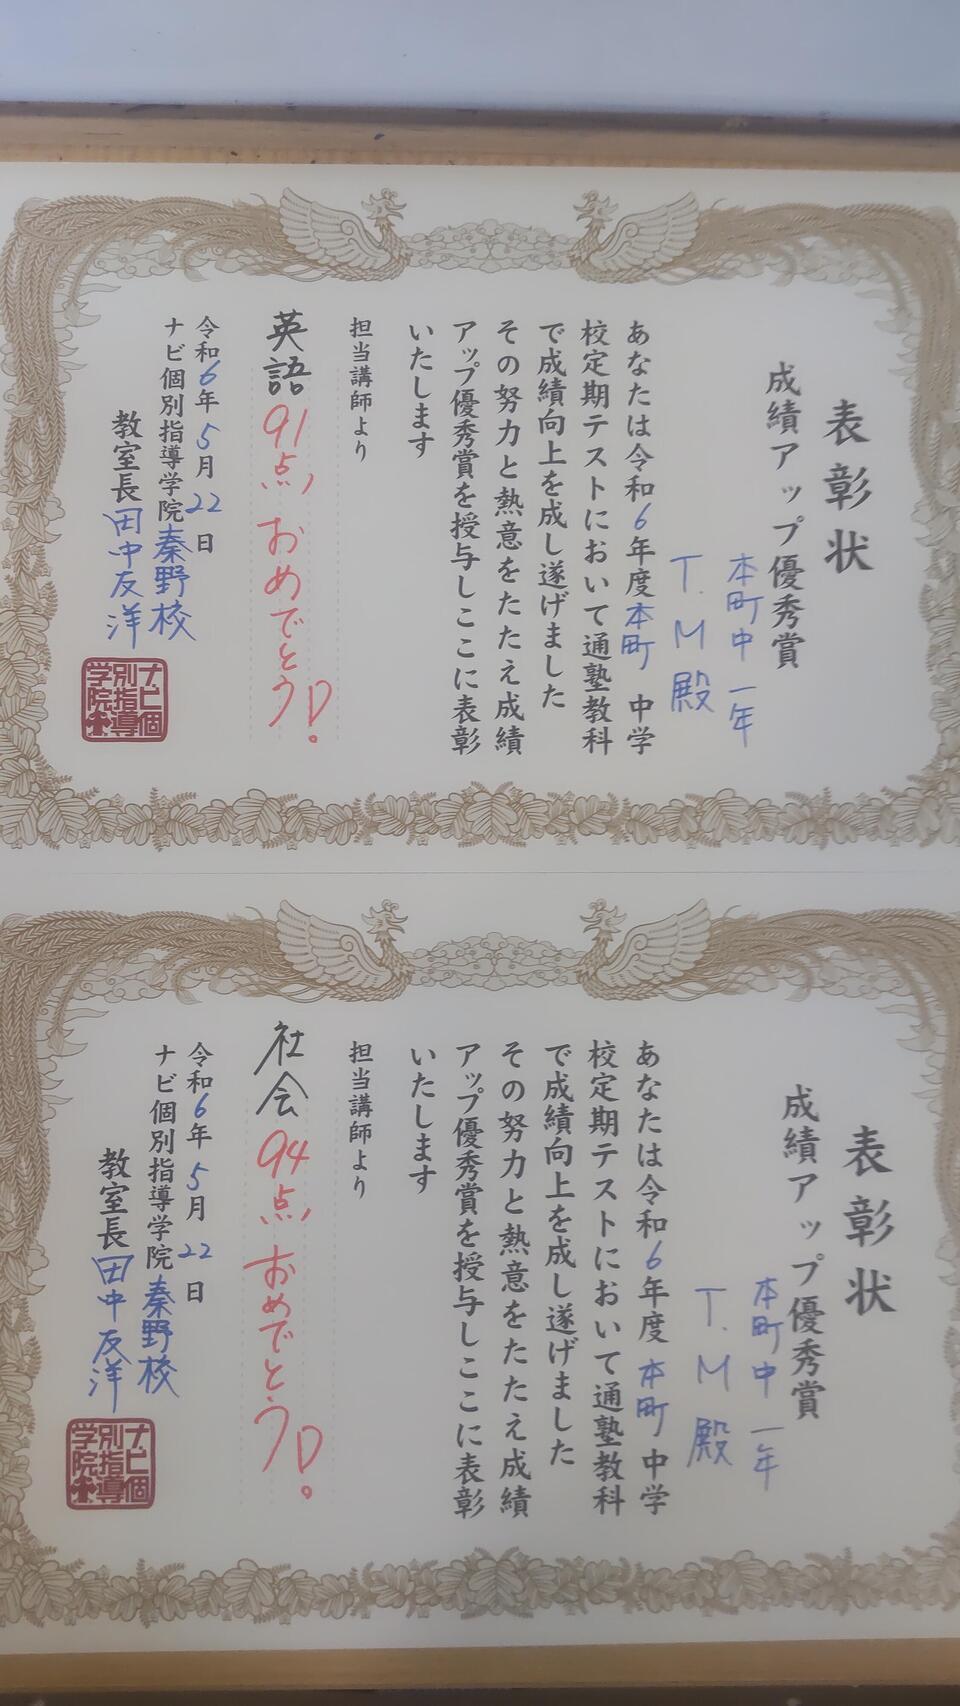 表彰状
成績アップ優秀賞
本町中一年
T.M殿
あなたは令和6年度本町 中学
校定期テストにおいて通塾教科
で成績向上を成し遂げました
その努力と熱意をたたえ成績
アップ優秀賞を授与しここに表彰
いたします
担当講師より
英語91点、おめでとう!!。
令和6年5月22日
ナビ個別指導学院秦野校
教室長田中友洋
ナビ個
別指導
学院
表彰状
成績アップ優秀賞
本町中一年
T.M殿
あなたは令和6年度本町 中学
校定期テストにおいて通塾教科
で成績向上を成し遂げました
その努力と熱意をたたえ成績
アップ優秀賞を授与しここに表彰
いたします
担当講師より
社会94点、おめでとう!!。
令和6年5月22日
ナビ個別指導学院秦野校
教室長田中友洋
ナビ個
別指導
学院